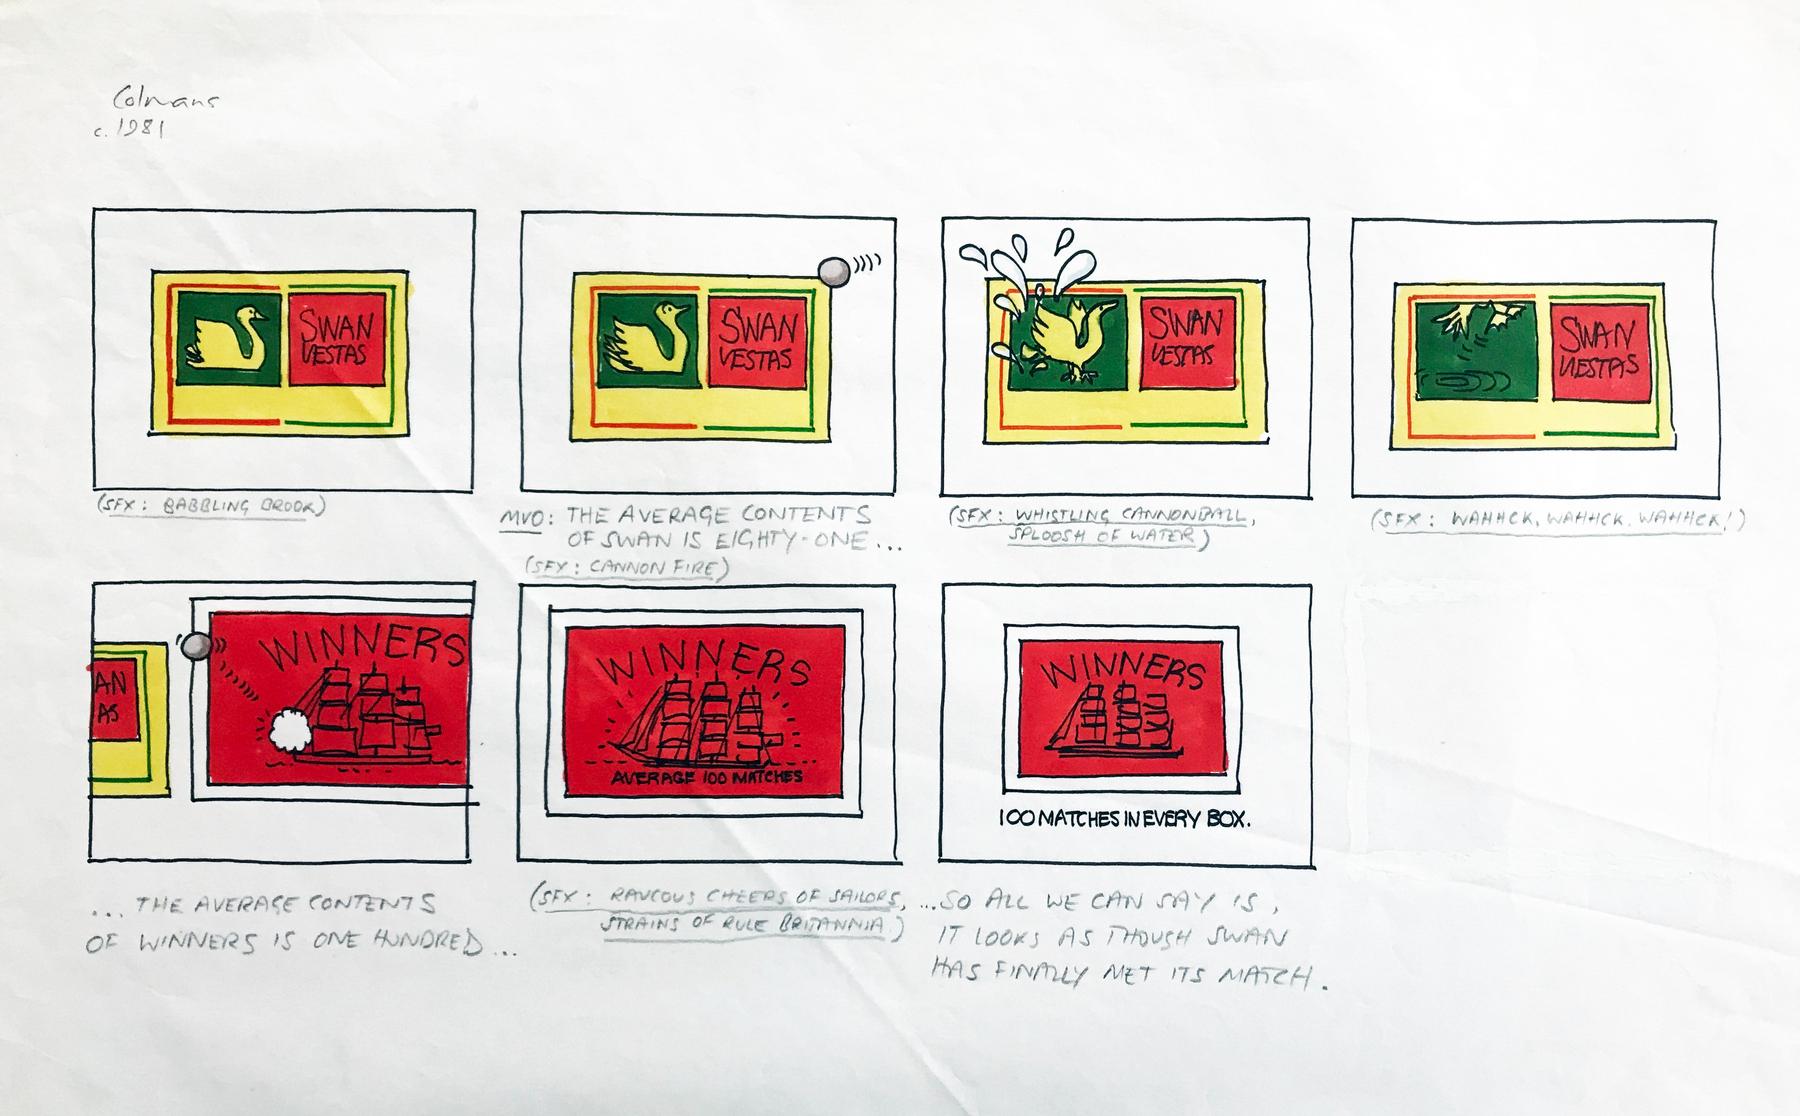 Colmans
c. 1981
SWAN
VESTAS
(SFX: BABBLING BROOK)
SWAN
VESTAS
MVO: THE AVERAGE CONTENTS
OF SWAN IS EIGHTY-ONE...
(SFX: CANNON FIRE)
SWAN
VESTAS
(SFX: WHISTLING CANNONBALL,
SPLOOSH OF WATER)
SWAN
VESTAS
(SFX: WAHHCK, WAHHCK, WAHHCK!)
AN
AS
WINNERS
... THE AVERAGE CONTENTS
OF WINNERS IS ONE HUNDRED...
WINNERS
AVERAGE 100 MATCHES
(SFX: RAUCOUS CHEERS OF SAILORS,
STRAINS OF RULE BRITANNIA.)
WINNERS
100 MATCHES IN EVERY BOX.
...SO ALL WE CAN SAY IS,
IT LOOKS AS THOUGH SWAN
HAS FINALLY MET ITS MATCH.